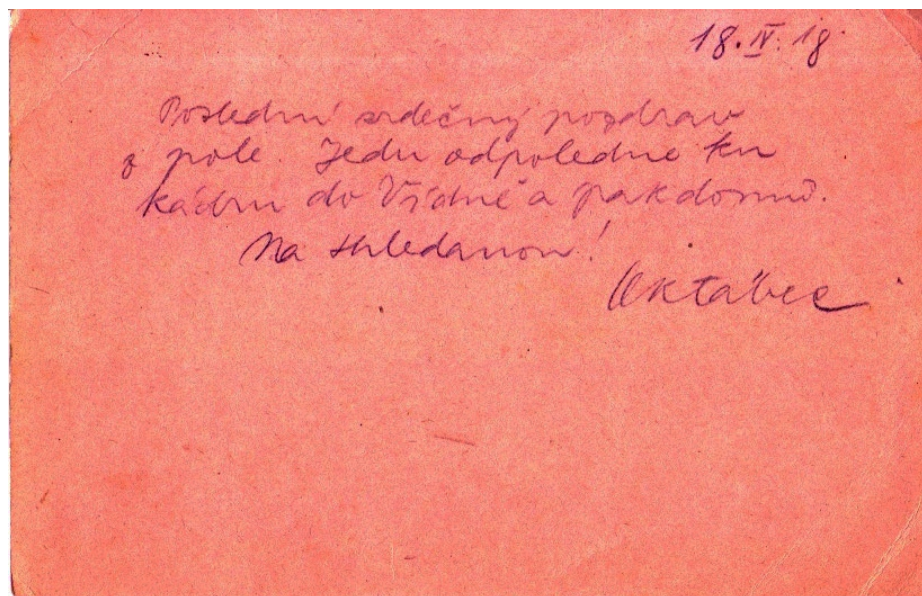 18. IV. 18.
Poslední srdečný pozdrav
z pole. Jedu odpoledne ku
kádru do Vídně a pak domů.
Na shledanou!
Oktábec